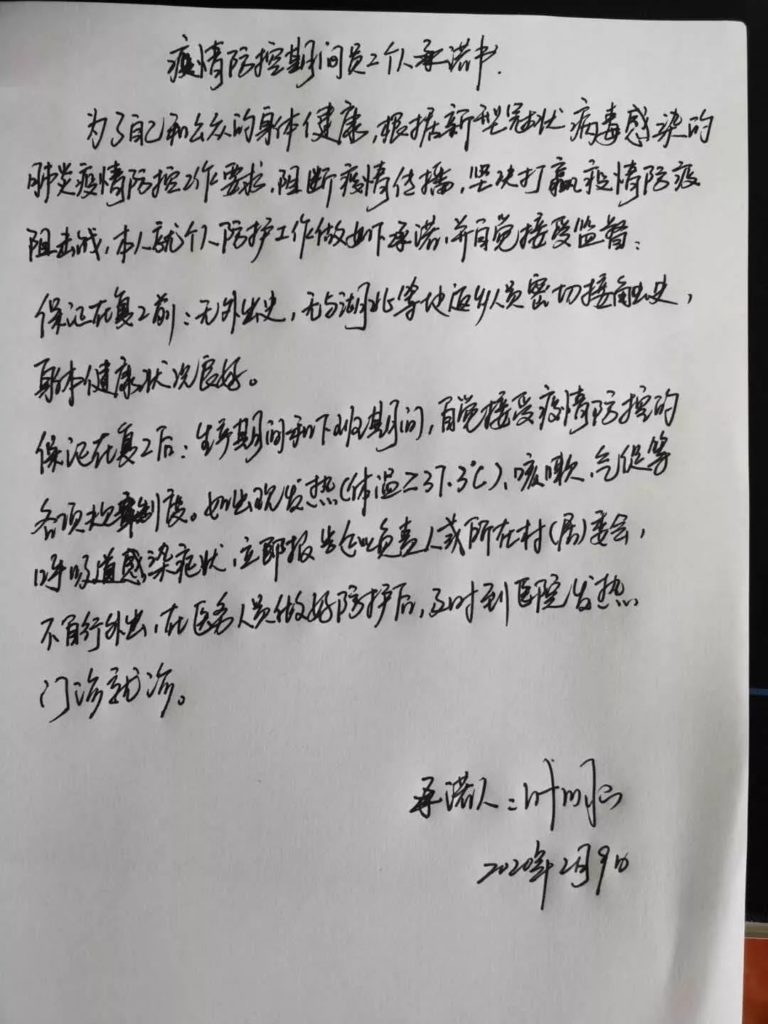 疫情防控期间员工个人承诺书.
为了自己和公众的身体健康,根据新型冠状病毒感染的
肺炎疫情防控工作要求,阻断疫情传播,坚决打赢疫情防疫
阻击战,本人就个人防护工作做如下承诺,并自觉接受监督:
保证在复工前:无外出史,无与湖北等地返乡人员密切接触史,
身体健康状况良好。
保证在复工后:生产期间和下班期间,自觉接受疫情防控的
各项规章制度。如出现发热(体温≥37.3℃)、咳嗽、气促等
呼吸道感染症状,立即报告企业负责人或所在村(居)委会,
不自行外出,在医务人员做好防护后,及时到医院发热
门诊就诊。
承诺人:叶明
2020年2月9日